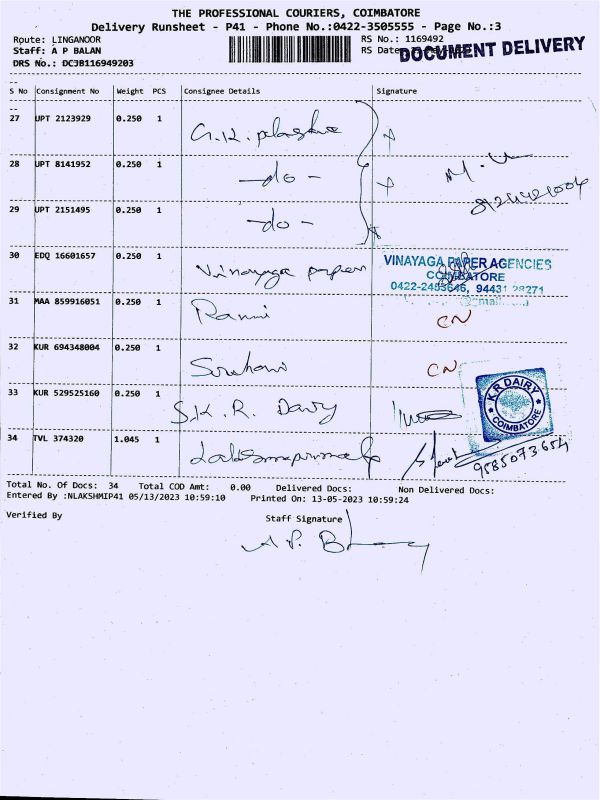 THE PROFESSIONAL COURIERS, COIMBATORE
Delivery Runsheet - P41 - Phone No.:0422-3505555 - Page No.:3
Route: LINGANOOR
RS No.: 1169492
Staff: A P BALAN
RS Date
DOCUMENT DELIVERY
DRS No.: DCJB116949203
S No Consignment No Weight PCS Consignee Details Signature
27 UPT 2123929 0.250 1 G.K.
28 UPT 8141952 0.250 1 -do-
29 UPT 2151495 0.250 1 -do-
30 EDQ 16601657 0.250 1 Vinayaga papers
VINAYAGA PAPER AGENCIES
COIMBATORE
0422-2453646, 94431 28271
31 MAA 859916051 0.250 1 CN
32 KUR 694348004 0.250 1 CN
33 KUR 529525160 0.250 1 S.K.R. Dairy
K R DAIRY
COIMBATORE
34 TVL 374320 1.045 1
9585073654
Total No. Of Docs: 34 Total COD Amt: 0.00 Delivered Docs: Non Delivered Docs:
Entered By :NLAKSHMIP41 05/13/2023 10:59:10 Printed On: 13-05-2023 10:59:24
Verified By Staff Signature
A P. B